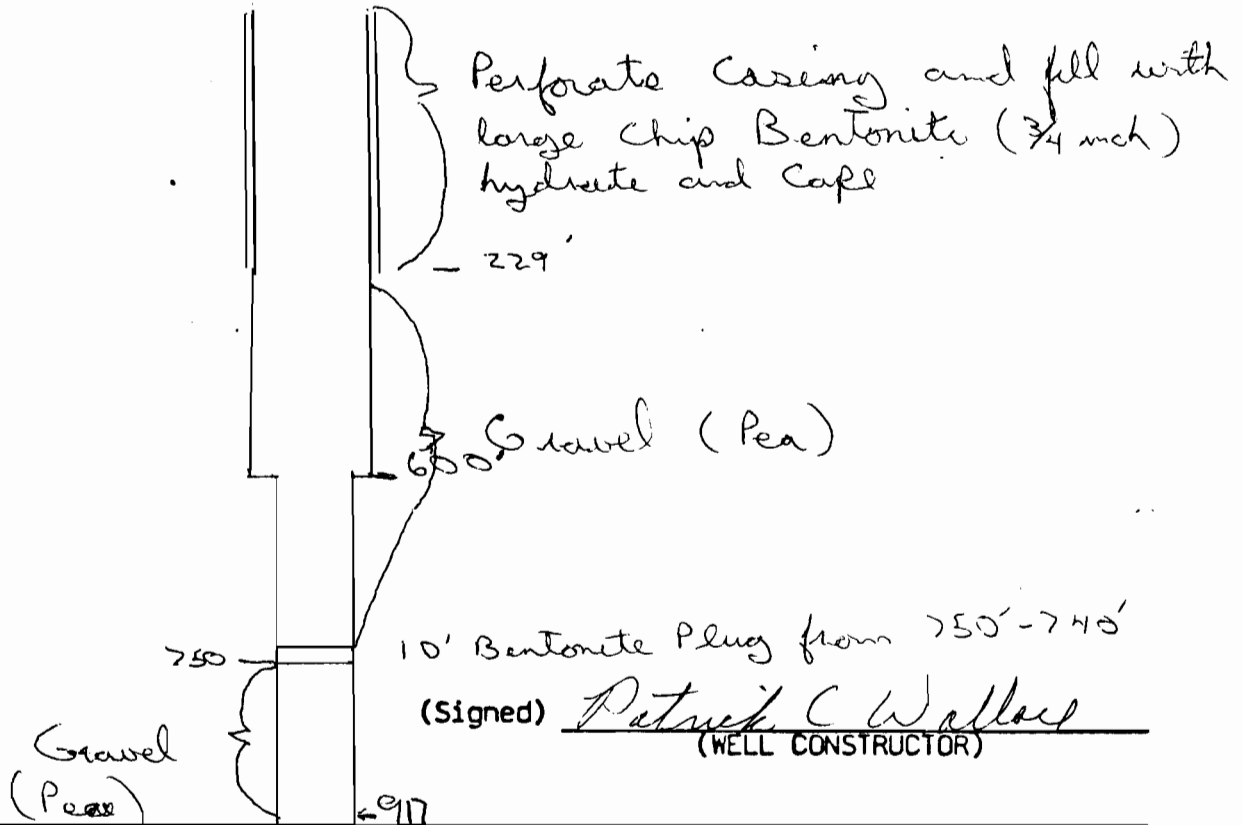 Perforate Casing and fill with
large Chip Bentonite (3/4 inch)
hydrate and Cap
- 229'
Gravel (Pea)
600'
10' Bentonite Plug from 750'-740'
750
(Signed) Patrick C Wallace
(WELL CONSTRUCTOR)
Gravel
(Pea)
917